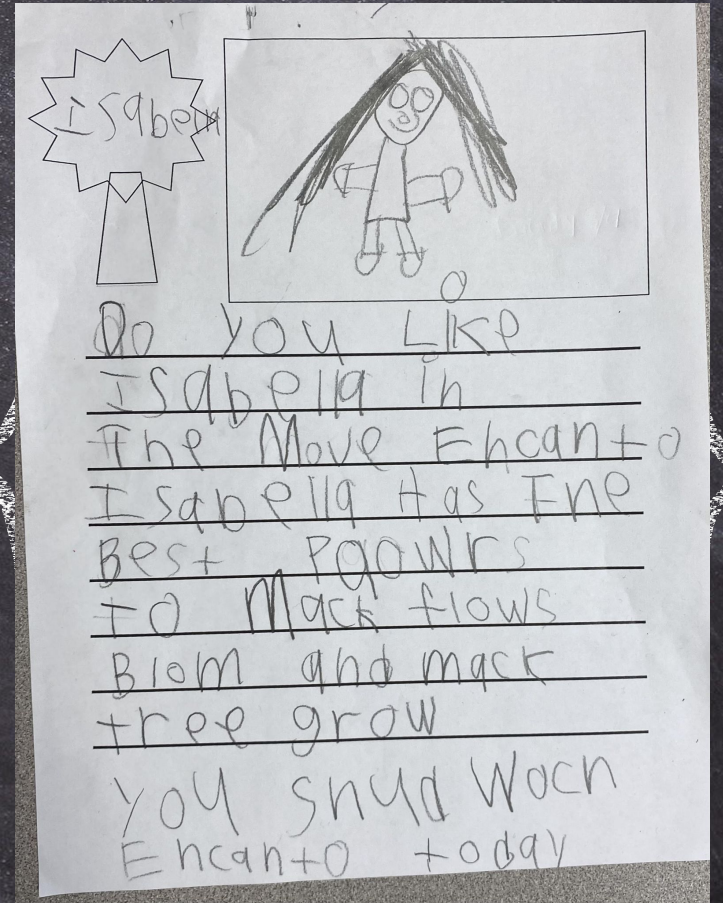 ISabella
Do you Like
ISabella in
The Move Encanto
Isabella Has The
Best Pqowrs
to Mack flows
Blom and mack
tree grow
you Shud Woch
Encanto today